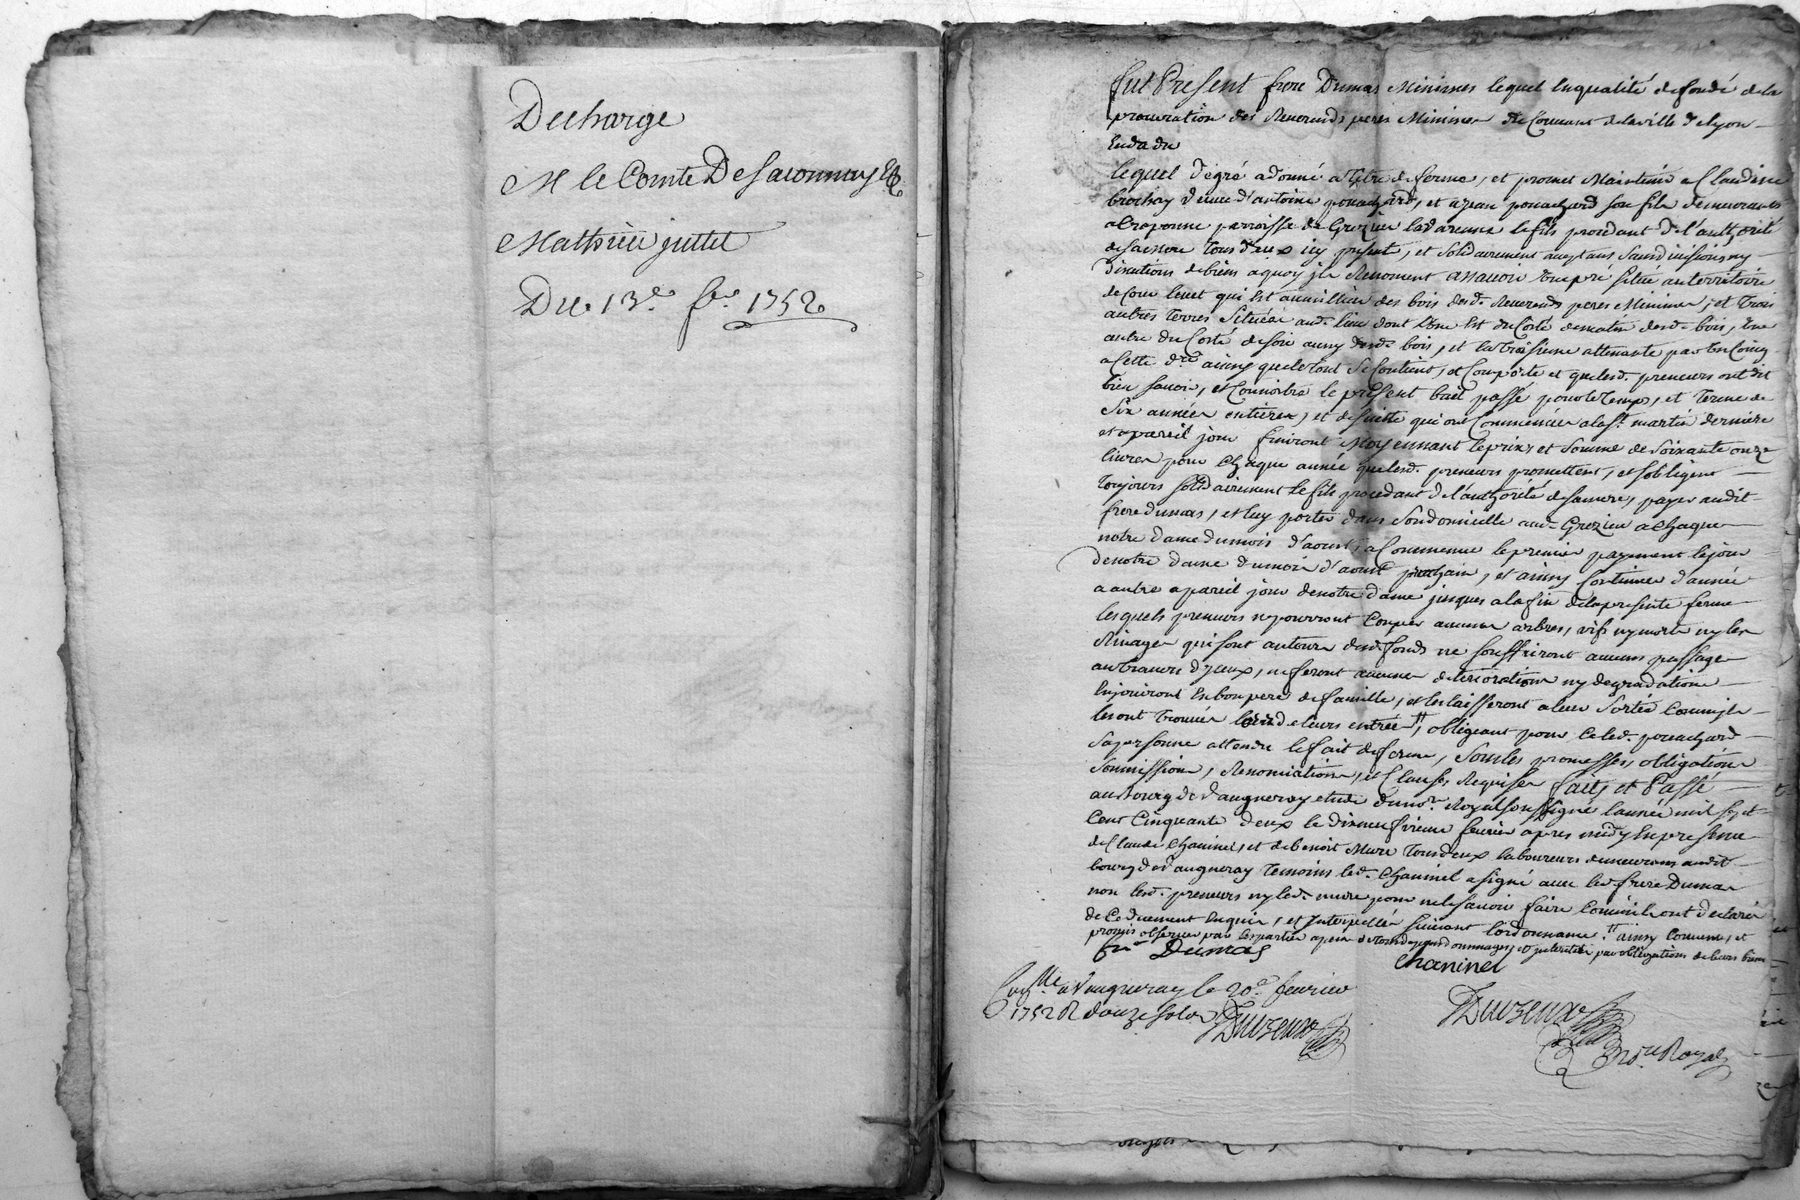 Decharge
M le Comte De Saconnay &
Mathieu juttet
Du 13e. fer. 1752
fut Present frere Dumas Minimes lequel Enqualité de fondé de la
procuration des Reverends peres Minimes du Couvent delaville de lyon
En datte du
lequel degré adonné atitre de ferme, et promet Maintenir a Claudine
brochay veuve d'antoine pouachard, et ajean pouachard son fils demeurants
paroisse de Grezieu lavarenne le fils procedant de l'authorité
desamere tous deux icy presents, et solidairement acceptans sans division ny
discutions debiens aquoy ils Renoncent assavoir un pré situé au territoire
de qui Est aumillieu des bois desd. Reverends peres Minimes, et trois
autres terres situées aud. lieu dont L'une Est du Costé dematin desd. bois, Une
autre du Costé desoir aussy desd. bois, et la troisieme attenante par un Coing
a Cette dre. ainsy queletout se Contient, et Comporte et quelesd. preneurs ont dit
bien savoir, et Connoitre le present bail passé pour le temps, et terme de
Six années entieres, et desuitte qui ont Commencées alast. martin derniere
et apareil jour finiront Moyennant leprix, et somme de soixante onze
livres pour Chaque année quelesd. preneurs promettent, et sobligent
toujours solidairement le fils procedant de l'authorité desamere, payer audit
frere dumas, et luy porter dans Sondomicille aud. Grezieu a Chaque
notre dame dumois d'aoust, a Commencer le premier payement lejour
denotre dame dumois d'aoust prochain, et ainsy Continuer d'année
a autre apareil jour denotre dame jusques alafin delapresente ferme
lesquels preneurs nepourront Couper aucuns arbres, vifs ny morts ny les
Rivages qui sont autour desd. fonds ne souffriront aucuns passages
autravers d'yceux, ne feront aucunes deteriorations ny degradations
Enjouiront En bon pere de famille, et les laisseront aleur sortie Comme ils
les ont trouvés lors deleurs entrée, obligeant pour Ce led. pouachard
sapersonne attendu lefait deferme, Sous les promesses, obligations
soumissions, Renonciations, et Clauses Requises faits et Passé
au bourg de Vaugneray etude dunore. Royal soussigné l'année mil sept
Cent Cinquante deux le dixneufvieme fevrier apres midy En presence
de Claude Chaninel, et de benoit Mure tous deux laboureurs demeurans audit
bourg de vaugneray temoins led. Chaninel a signé avec led. frere Dumas
non lesd. preneurs ny led. mure pour ne le savoir faire Comme ils ont declaré
de Ce duement Enquis, et Interpellés suivant lordonnance. ainsy Convenu, et
promis observer par lesparties apeine detous depens dommages, et interests par obligations de leurs biens
fr. Dumas
Chaninel
Conlle. a Vaugneray le 20e. fevrier
1752 R douze sols Duvzeux
Duvzeux
nore. Royal